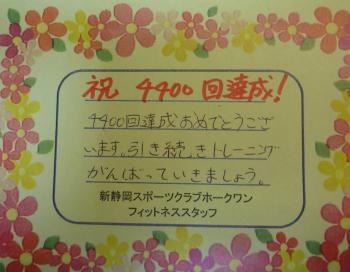 祝 4400回達成!
4400回達成おめでとうござ
います。引き続きトレーニング
がんばっていきましょう。
新静岡スポーツクラブホークワン
フィットネススタッフ